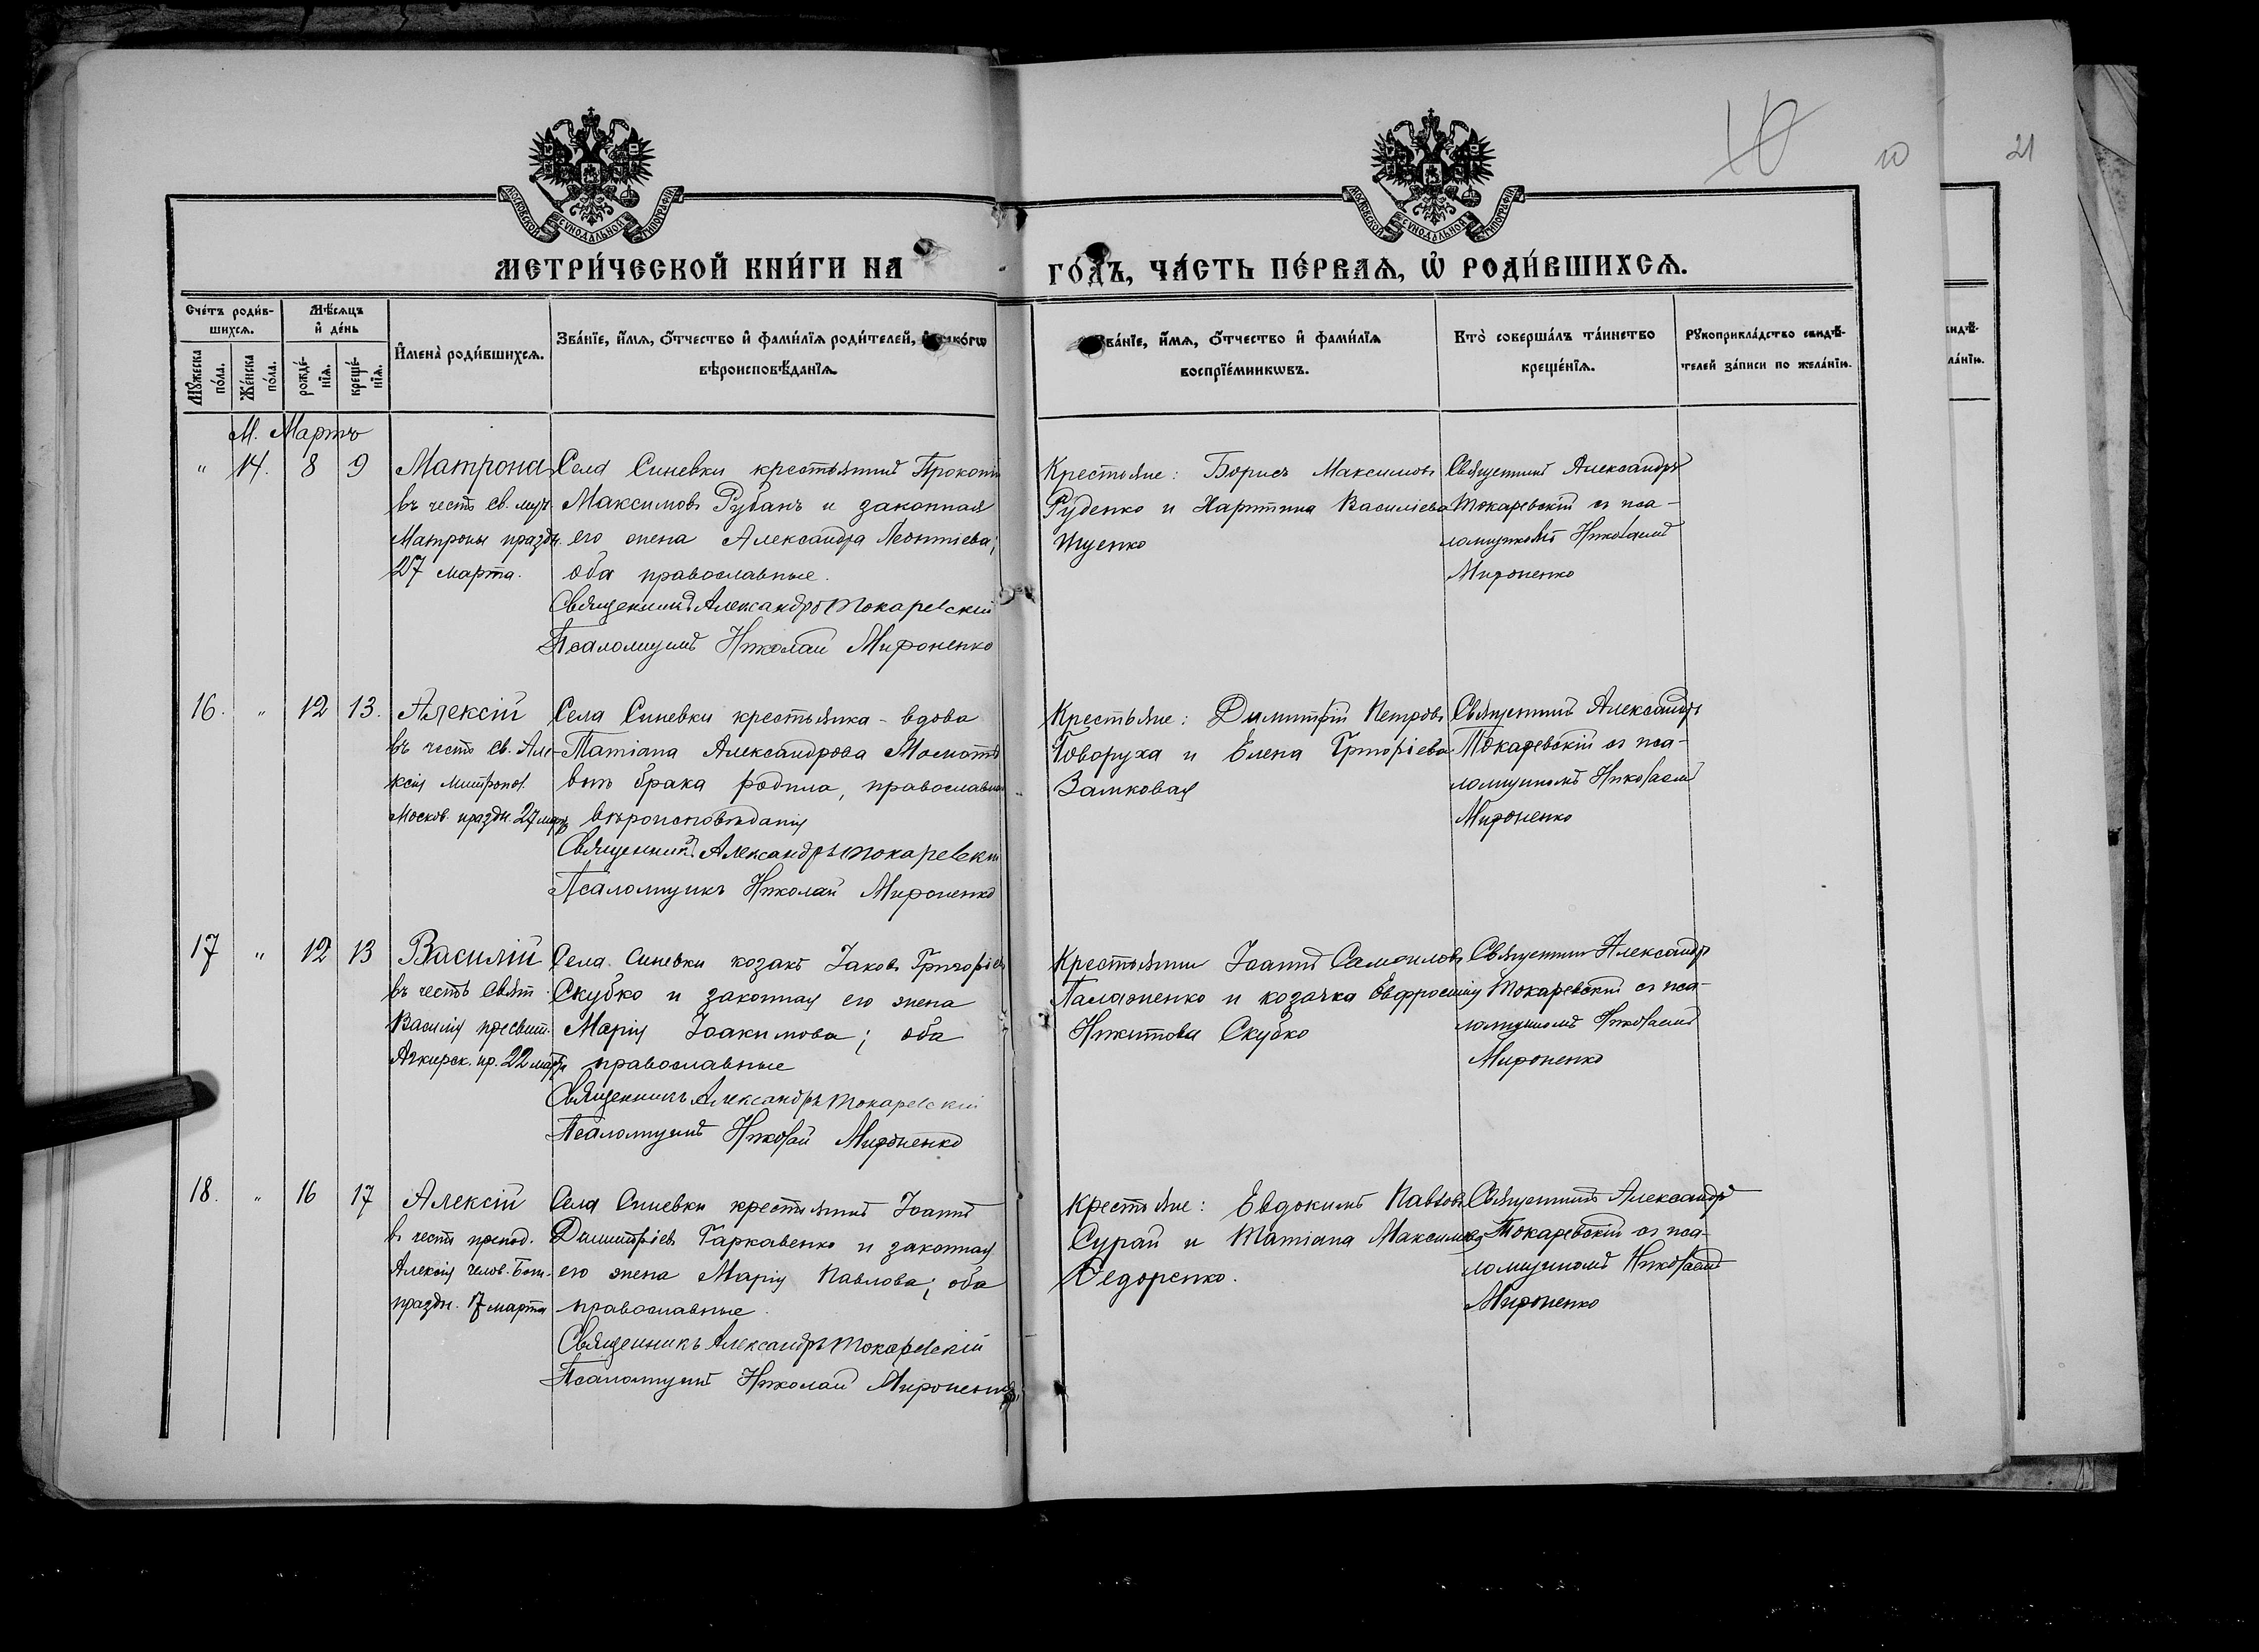 10
10
21
МОСКОВСКОЙ СѴНОДАЛЬНОЙ ТИПОГРАФІИ
МОСКОВСКОЙ СѴНОДАЛЬНОЙ ТИПОГРАФІИ
МЕТРИ́ЧЕСКОЙ КНИ́ГИ НА
ГО́ДЪ, ЧА́СТЬ ПЕ́РВАѦ, Ѡ҆ РОДИ́ВШИХСѦ.
Сче́тъ роди́в-
шихсѧ.
Мѣ́сѧцъ
и҆ де́нь
Мꙋ́жеска
по́ла.
Же́нска
по́ла.
рожде́-
нїѧ.
креще́-
нїѧ.
И҆мена̀ роди́вшихсѧ.
Зва́нїе, и҆́мѧ, ѻ҆́тчество и҆ фами́лїѧ роди́телей, и҆ како́гѡ
вѣроисповѣ́данїѧ.
Зва́нїе, и҆́мѧ, ѻ҆́тчество и҆ фами́лїѧ
воспрїе́мникѡвъ.
Кто̀ соверша́лъ та́инство
креще́нїѧ.
Рꙋкоприкла́дство свидѣ́-
телей за́писи по жела́нїю.
видѣ́-
ла́нїю.
М. Мартъ
" 14. 8 9 Матрона
въ честь св. муч.
Матроны праздн.
27 марта.
Села Синевки крестьянинъ Прокопій
Максимовъ Рубанъ и законная
его жена Александра Леонтіева;
оба православные.
Священникъ Александръ Токаревскій
Псаломщикъ Николай Мироненко
Крестьяне: Борисъ Максимовъ
Руденко и Харитина Василіева
Ищенко
Священникъ Александръ
Токаревскій съ пса-
ломщикомъ Николаемъ
Мироненко
16. " 12 13. Алексій
въ честь св. Але-
ксія митропол.
Москов. праздн. 27 марта
Села Синевки крестьянка - вдова
Татіана Александрова
внѣ брака родила, православнаго
вѣроисповѣданія
Священникъ Александръ Токаревскій
Псаломщикъ Николай Мироненко
Крестьяне: Димитрій Петровъ
Говоруха и Елена Григоріева
Замковая
Священникъ Александръ
Токаревскій съ пса-
ломщикомъ Николаемъ
Мироненко
17 " 12 13 Василій
въ честь свят.
Василія пресвит.
Анкирск. пр. 22 марта
Села Синевки козакъ Іаковъ Григоріевъ
Скубко и законная его жена
Марія Іоакимова; оба
православные
Священникъ Александръ Токаревскій
Псаломщикъ Николай Мироненко
Крестьянин Іоаннъ Самоиловъ
Паламаренко и козачка Евфросинія
Никитова Скубко
Священникъ Александръ
Токаревскій съ пса-
ломщикомъ Николаемъ
Мироненко
18. " 16 17 Алексій
въ честь препод.
Алексія челов. Бож.
праздн. 17 марта
Села Синевки крестьянинъ Іоаннъ
Димитріевъ Гаркавенко и законная
его жена Марія Павлова; оба
православные.
Священникъ Александръ Токаревскій
Псаломщикъ Николай Мироненко
Крестьяне: Евдокимъ Павловъ
Сурай и Татіана Максимова
Федоренко.
Священникъ Александръ
Токаревскій съ пса-
ломщикомъ Николаемъ
Мироненко